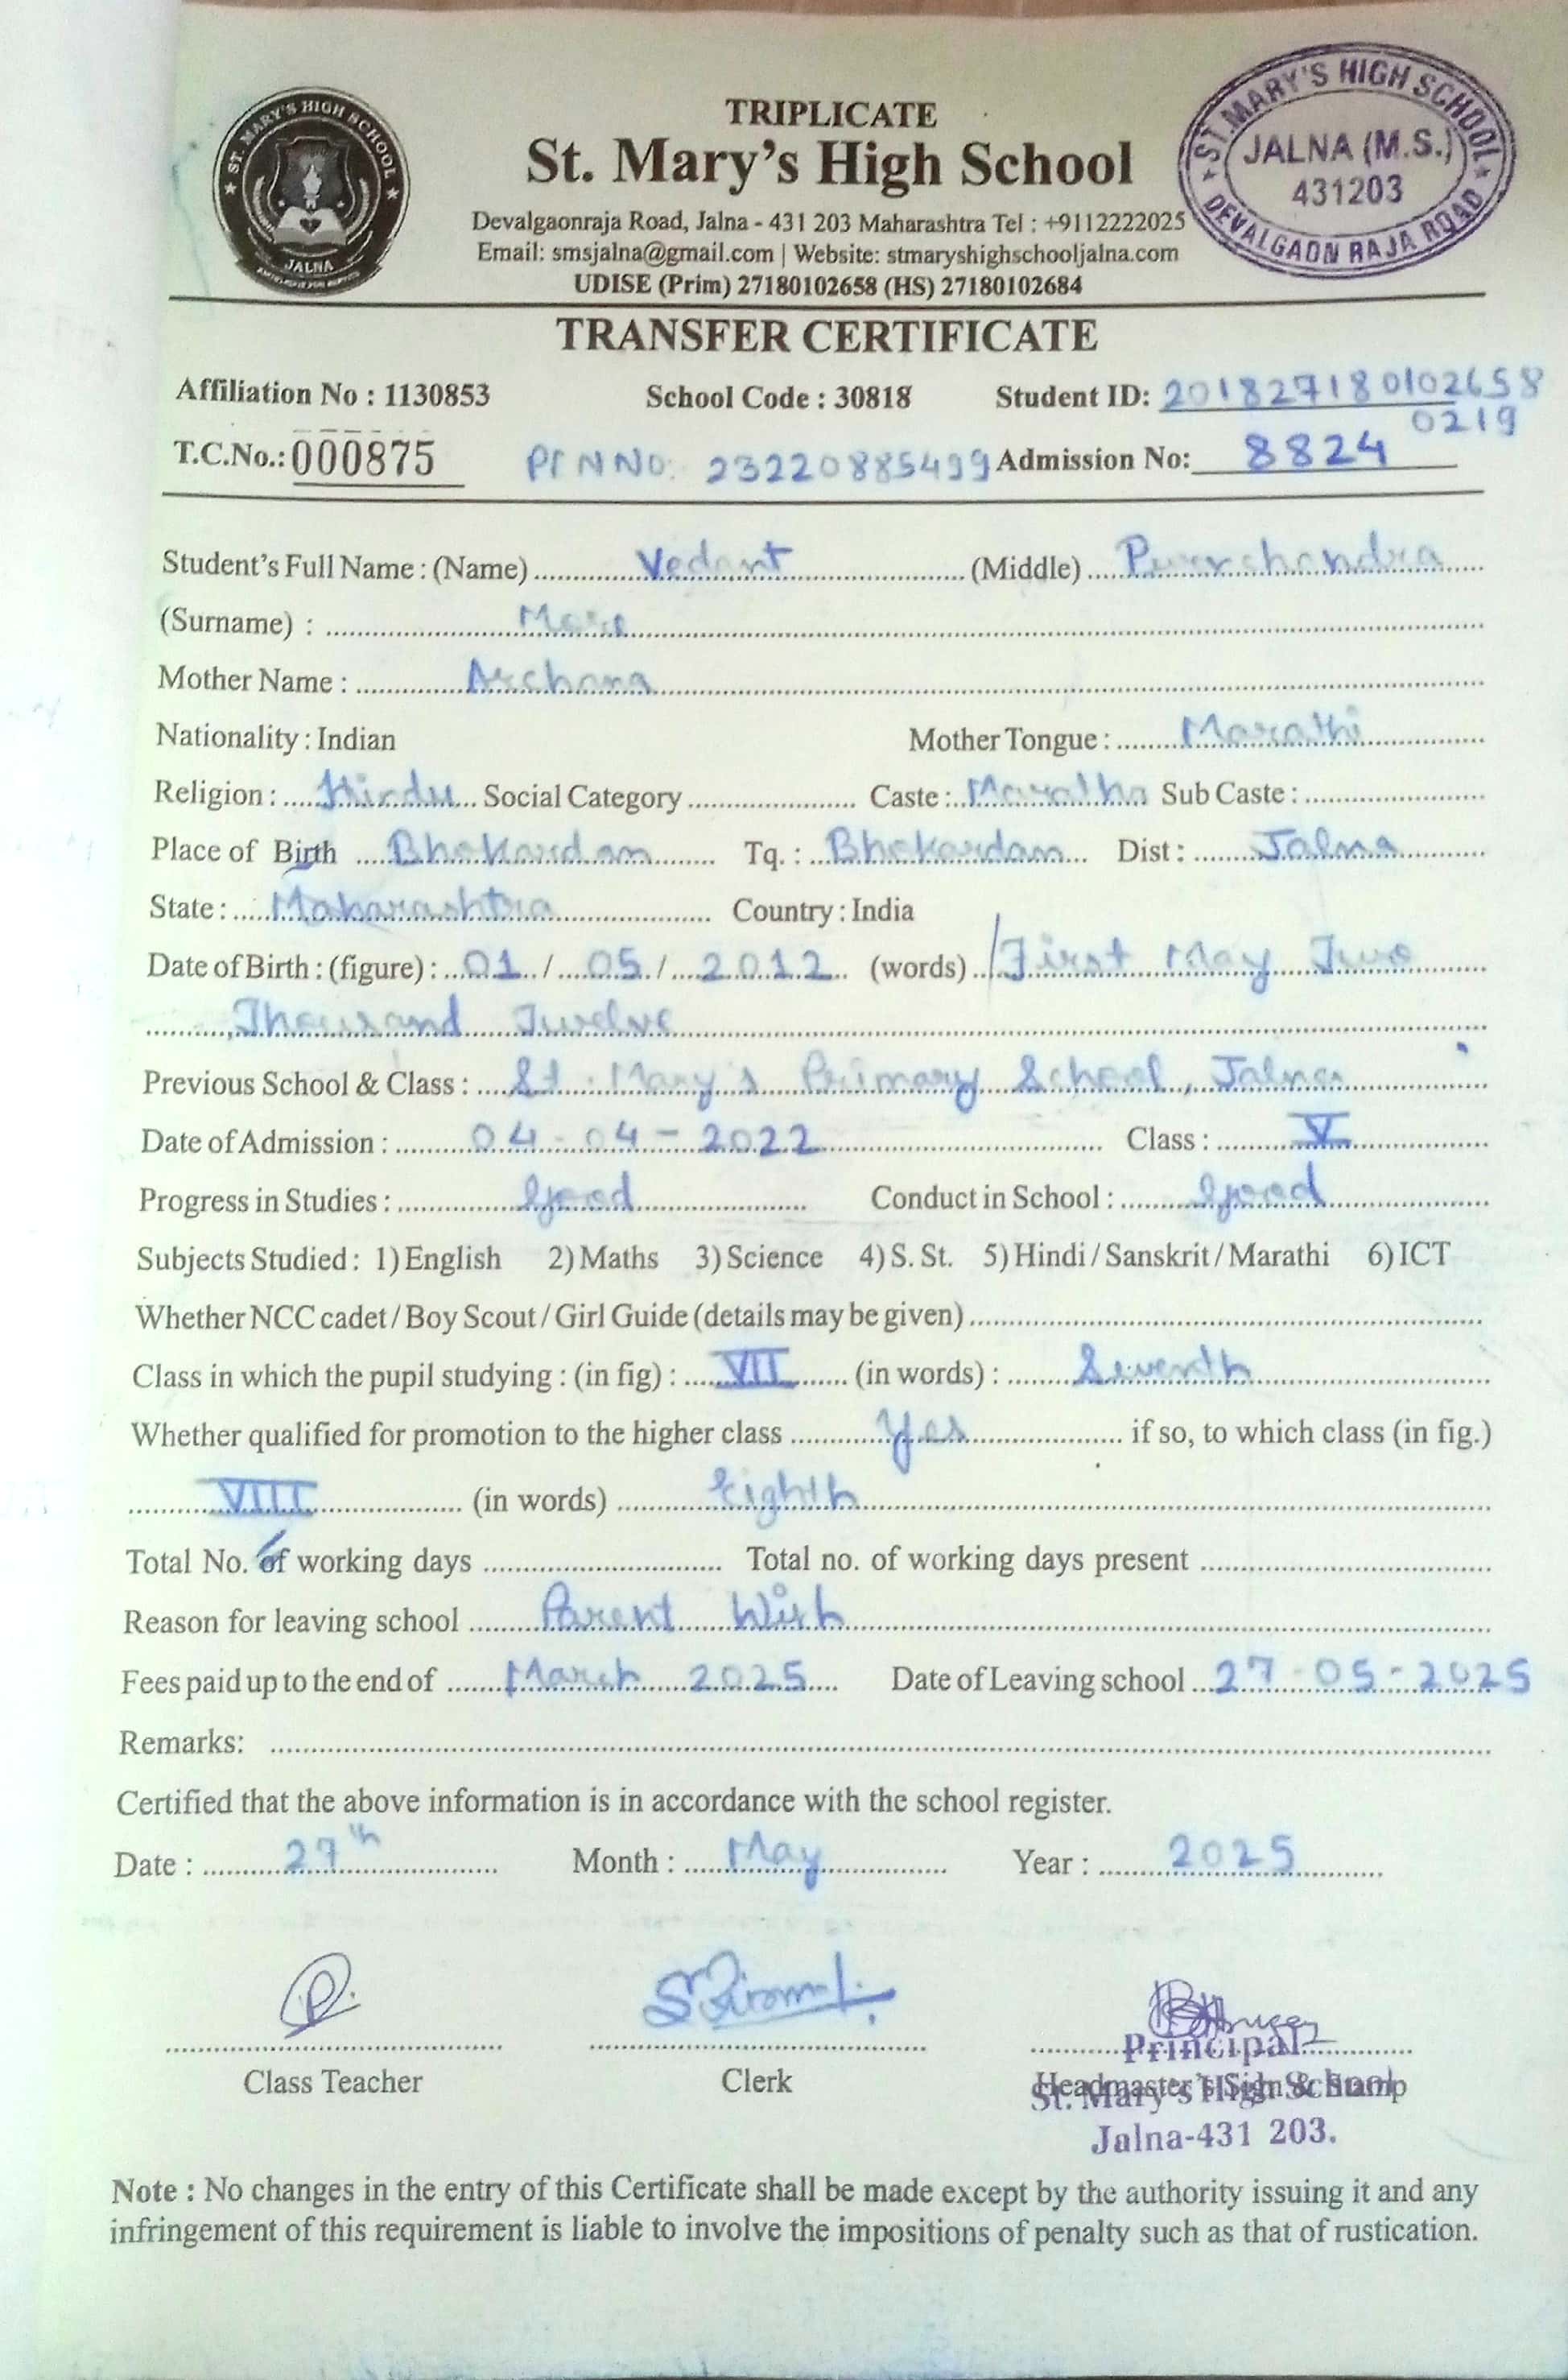 TRIPLICATE
St. Mary's High School
Devalgaonraja Road, Jalna - 431 203 Maharashtra Tel : +9112222025
Email: smsjalna@gmail.com | Website: stmaryshighschooljalna.com
UDISE (Prim) 27180102658 (HS) 27180102684
ST. MARY'S HIGH SCHOOL
JALNA
ST. MARY'S HIGH SCHOOL
JALNA (M.S.)
431203
DEVALGAON RAJA ROAD
TRANSFER CERTIFICATE
Affiliation No : 1130853 School Code : 30818 Student ID: 201827180102658
0219
T.C.No.: 000875 NNO: 23220885499 Admission No: 8824
Student's Full Name : (Name) Vedant (Middle)
(Surname) :
Mother Name : Archana
Nationality : Indian Mother Tongue : Marathi
Religion : Hindu Social Category Caste : Maratha Sub Caste :
Place of Birth Bhokardan Tq. : Bhokardan Dist : Jalna
State : Maharashtra Country : India
Date of Birth : (figure) : 01 / 05 / 2012 (words) First May Two
Thousand Twelve
Previous School & Class : St. Mary's Primary School, Jalna
Date of Admission : 04-04-2022 Class : V
Progress in Studies : Good Conduct in School : Good
Subjects Studied : 1) English 2) Maths 3) Science 4) S. St. 5) Hindi / Sanskrit / Marathi 6) ICT
Whether NCC cadet / Boy Scout / Girl Guide (details may be given)
Class in which the pupil studying : (in fig) : VII (in words) : Seventh
Whether qualified for promotion to the higher class Yes if so, to which class (in fig.)
VIII (in words) Eighth
Total No. of working days Total no. of working days present
Reason for leaving school Parent Wish
Fees paid up to the end of March 2025 Date of Leaving school 27-05-2025
Remarks:
Certified that the above information is in accordance with the school register.
Date : 27th Month : May Year : 2025
Class Teacher Clerk Headmaster's Sign & Stamp
Principal
St. Mary's High School
Jalna-431 203.
Note : No changes in the entry of this Certificate shall be made except by the authority issuing it and any
infringement of this requirement is liable to involve the impositions of penalty such as that of rustication.